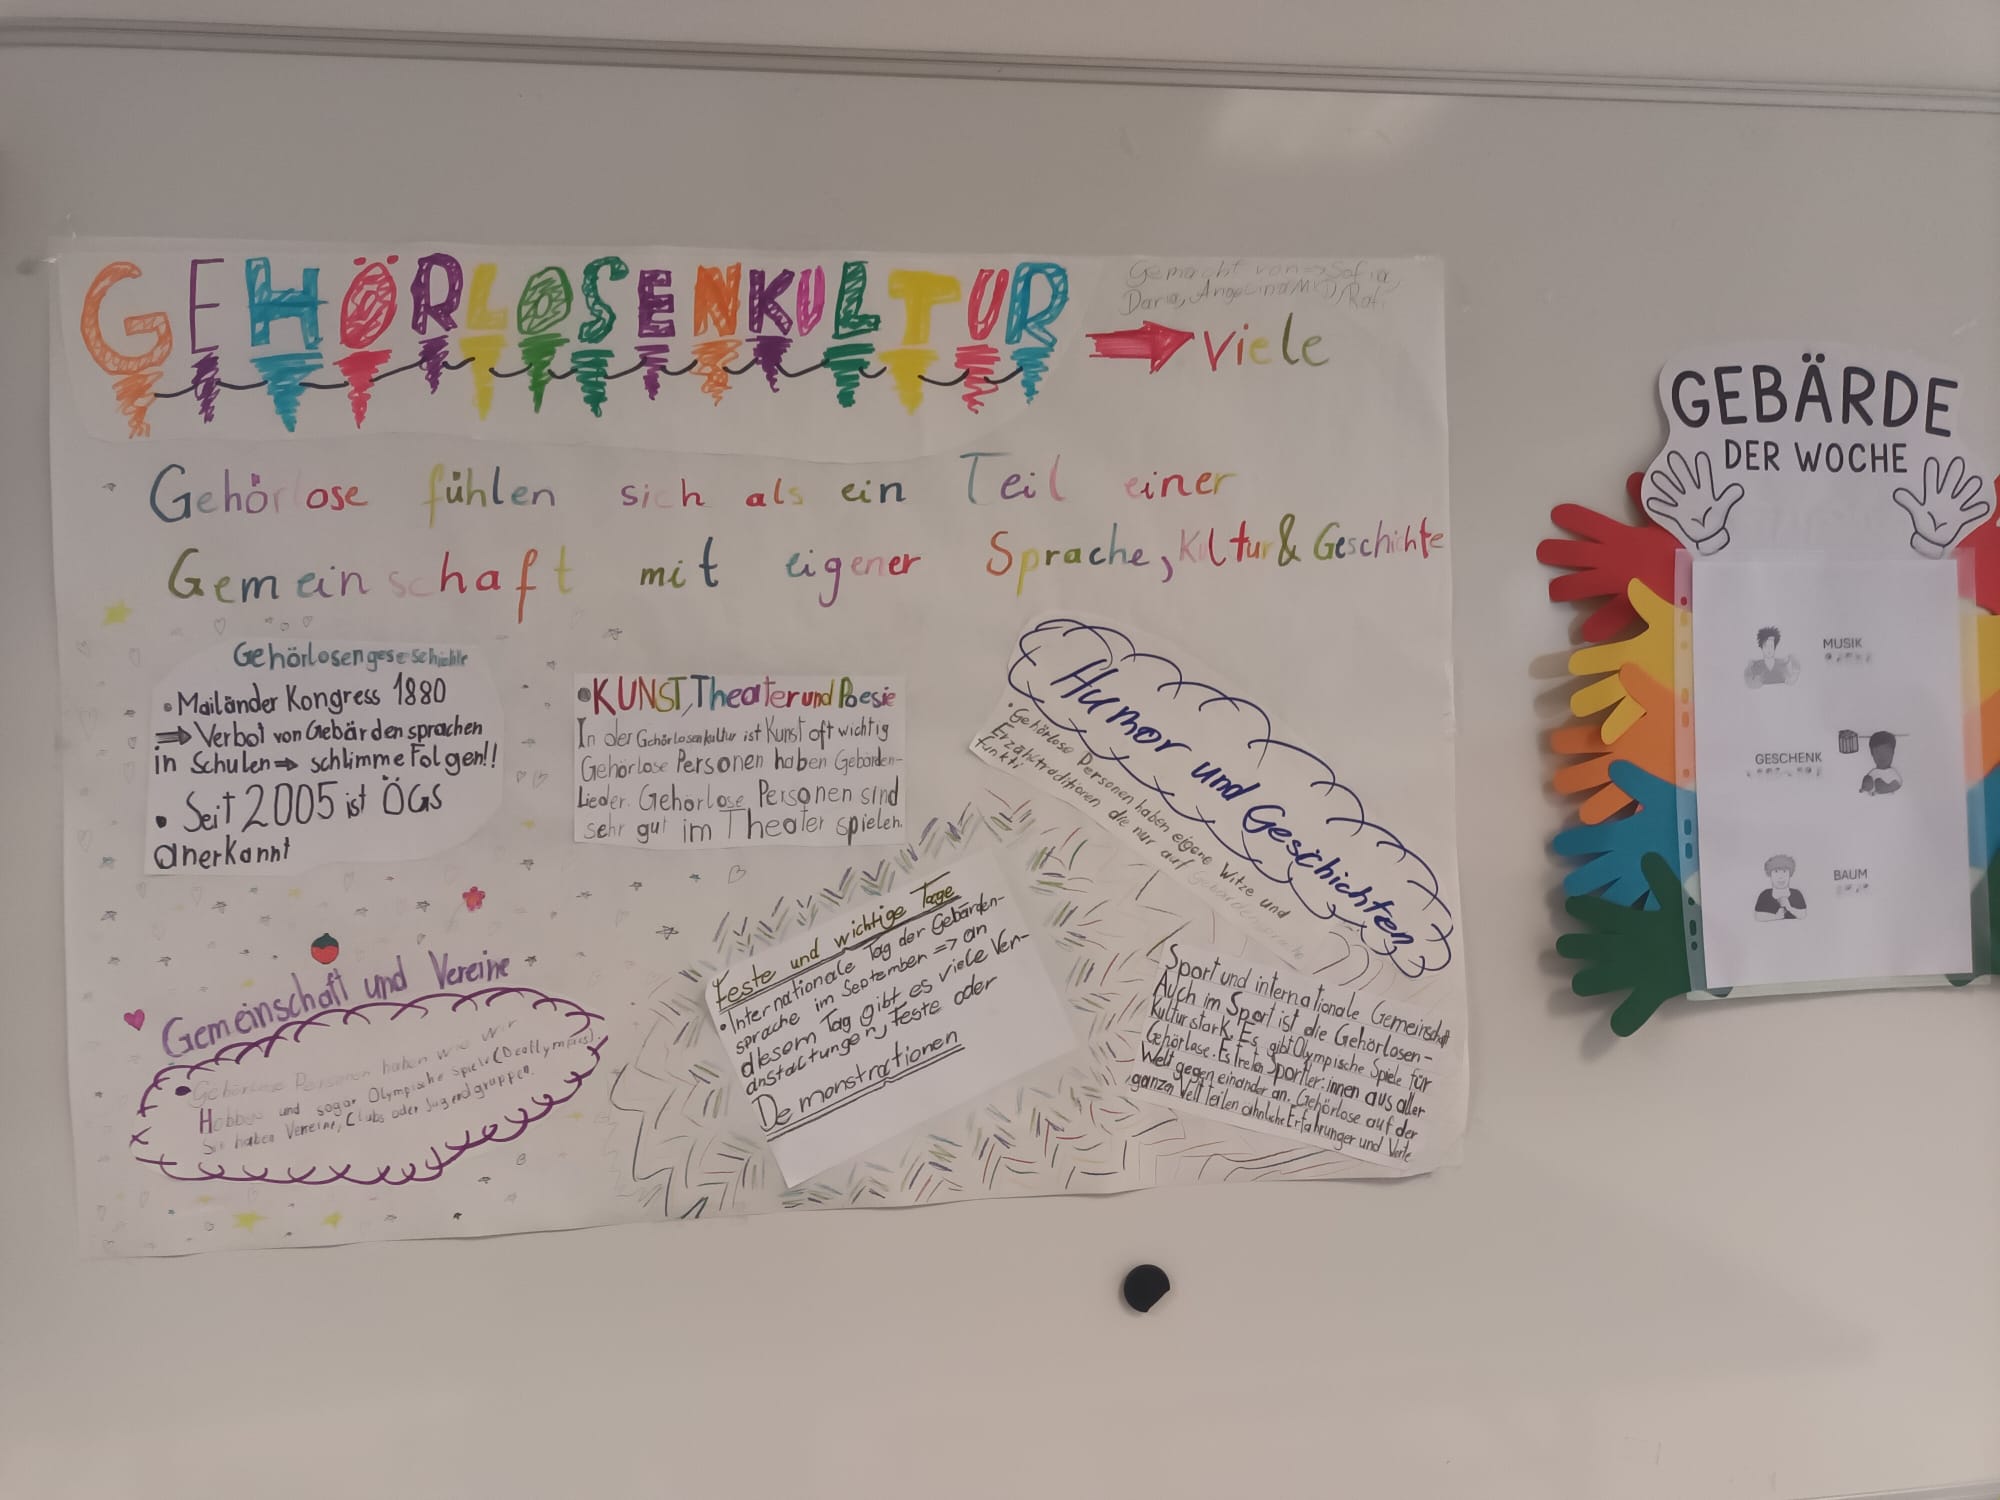 GEHÖRLOSENKULTUR
Gemacht von => Sofia,
Daria, Angelina
viele
Gehörlose fühlen sich als ein Teil einer
Gemeinschaft mit eigener Sprache, Kultur & Geschichte
Gehörlosengeseschichte
• Mailänder Kongress 1880
=> Verbot von Gebärdensprachen
in Schulen => schlimme Folgen!!
• Seit 2005 ist ÖGS
anerkannt
• KUNST, Theater und Poesie
In der Gehörlosenkultur ist Kunst oft wichtig
Gehörlose Personen haben Gebärden-
Lieder. Gehörlose Personen sind
sehr gut im Theater spielen.
Humor und Geschichten
• Gehörlose Personen haben eigene Witze und
Erzähltraditionen die nur auf Gebärdensprache
funkti
Gemeinschaft und Vereine
• Gehörlose Personen haben wie wir
Hobbys und sogar Olympische Spiele (Deaflympics).
Sie haben Vereine, Clubs oder Jugendgruppen.
Feste und wichtige Tage
• Internationale Tag der Gebärden-
sprache im September => an
diesem Tag gibt es viele Ver-
anstaltungen, feste oder
Demonstrationen
Sport und internationale Gemeinschaft
Auch im Sport ist die Gehörlosen-
kultur stark. Es gibt Olympische Spiele für
Gehörlose. Es treten Sportler:innen aus aller
Welt gegen einander an. Gehörlose auf der
ganzen Welt teilen ähnliche Erfahrungen und Werte
GEBÄRDE
DER WOCHE
MUSIK
GESCHENK
BAUM